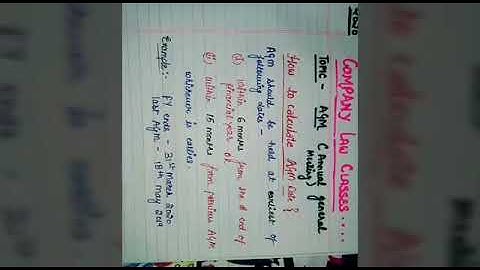 COMPANY LAW CLASSES....
TOPIC - AGM (Annual general
Meeting)
How to calculate AGM Date?
AGM should be held at earliest of
following dates -
(1) Within 6 months from the end of
financial year. or
(2) Within 15 months from previous AGM
whichever is earlier.
Example:- FY ends - 31st March 2020
last AGM - 18th May 2019